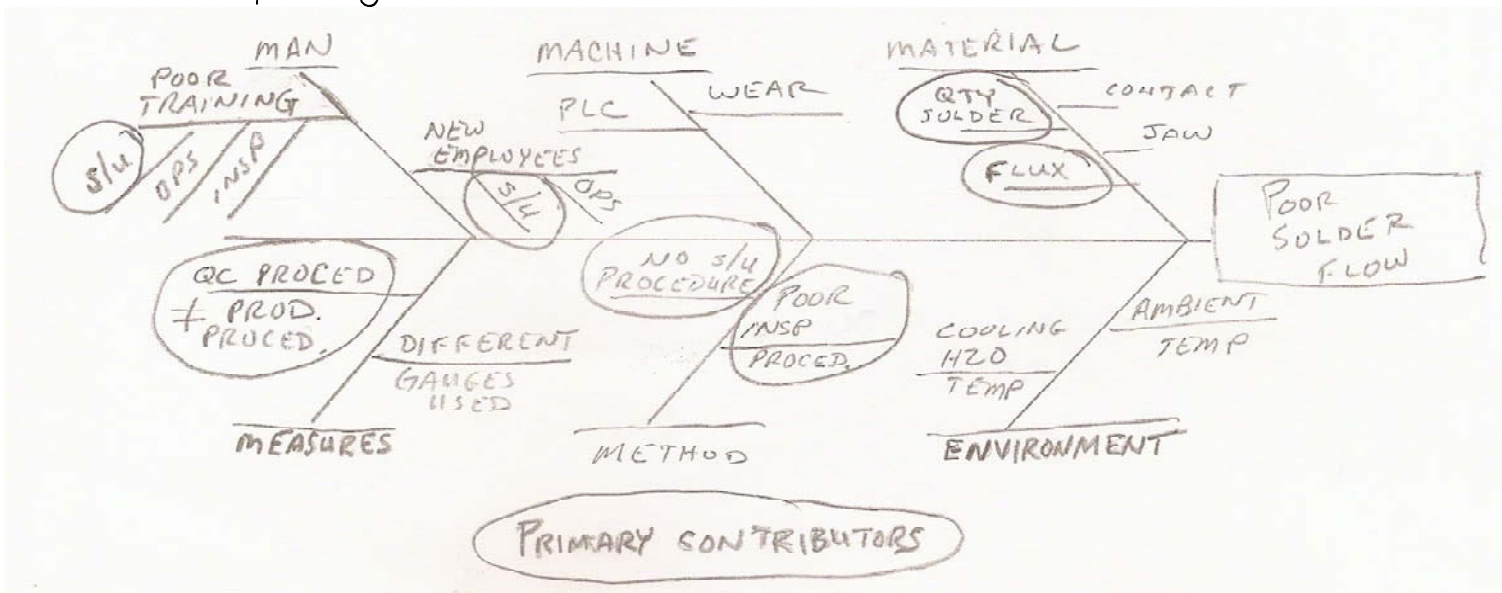 MAN
POOR
TRAINING
S/U
OPS
INSP
NEW
EMPLOYEES
S/U
OPS
MACHINE
PLC
WEAR
MATERIAL
QTY
SOLDER
CONTACT
JAW
FLUX
POOR
SOLDER
FLOW
QC PROCED
≠ PROD.
PROCED.
DIFFERENT
GAUGES
USED
MEASURES
NO S/U
PROCEDURE
POOR
INSP
PROCED.
METHOD
COOLING
H2O
TEMP
AMBIENT
TEMP
ENVIRONMENT
PRIMARY CONTRIBUTORS